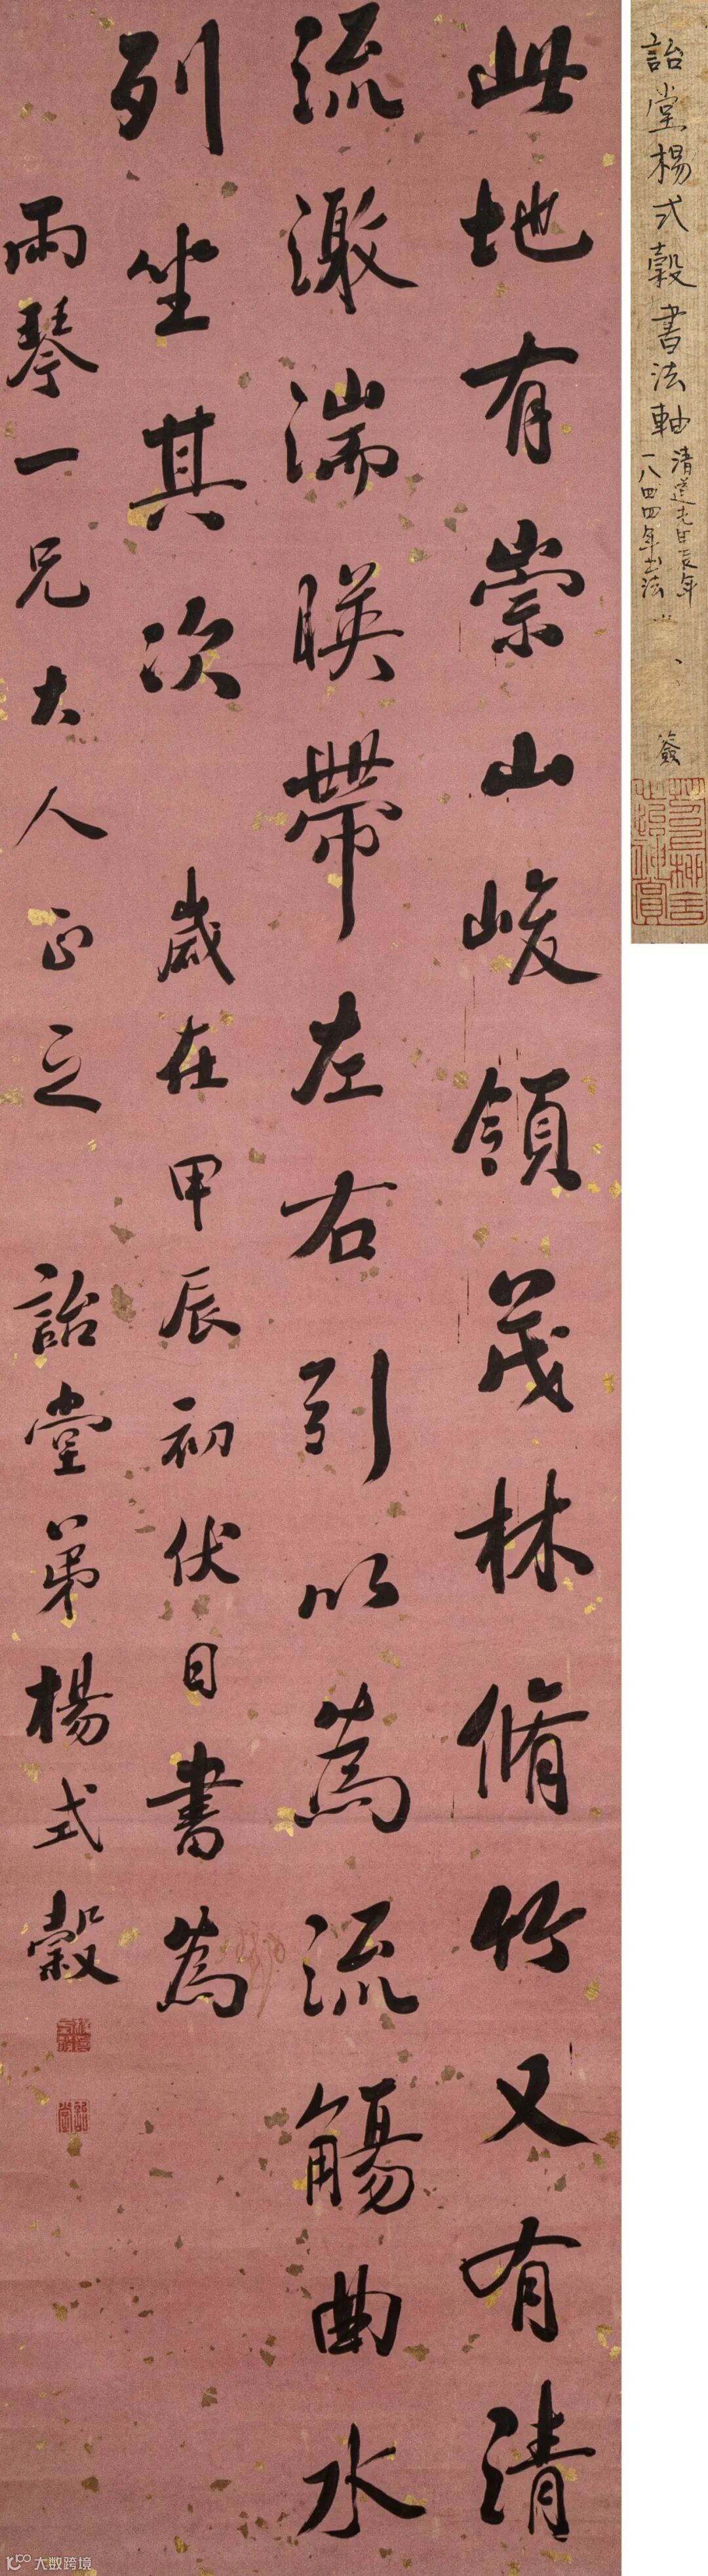 此地有崇山峻領茂林脩竹又有清
流激湍暎帶左右引以為流觴曲水
列坐其次 歲在甲辰初伏日書為
雨琴一兄大人正之 詒堂弟楊式穀
詒堂
詒堂楊式穀書法軸
清道光甲辰年
一八四四年書法
簽
大数跨境